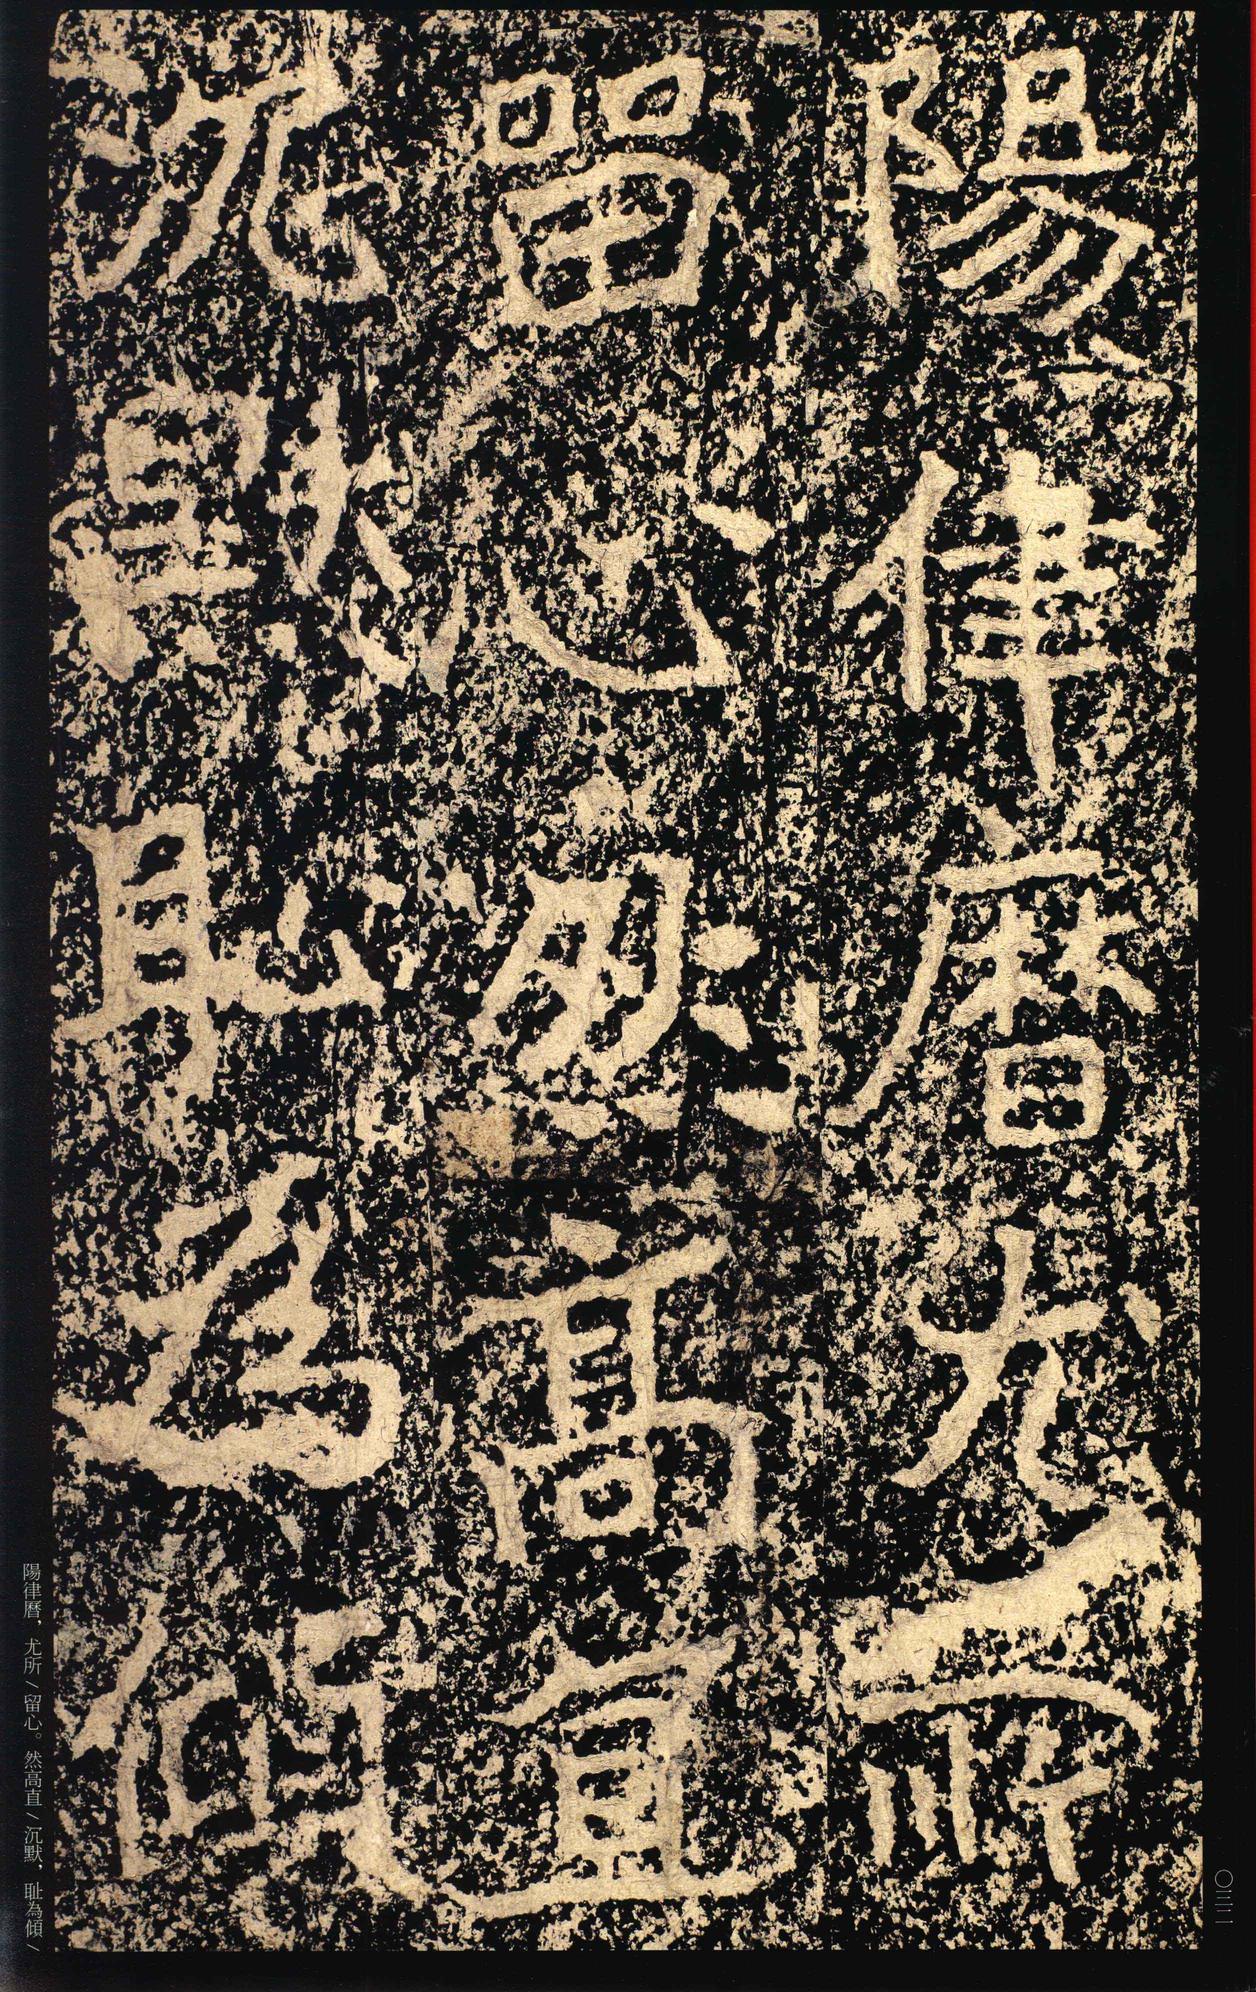 陽律曆尤所
留心然高直
沉默耻為傾
陽律曆，尤所／留心。然高直／沉默、耻為傾／
〇三二